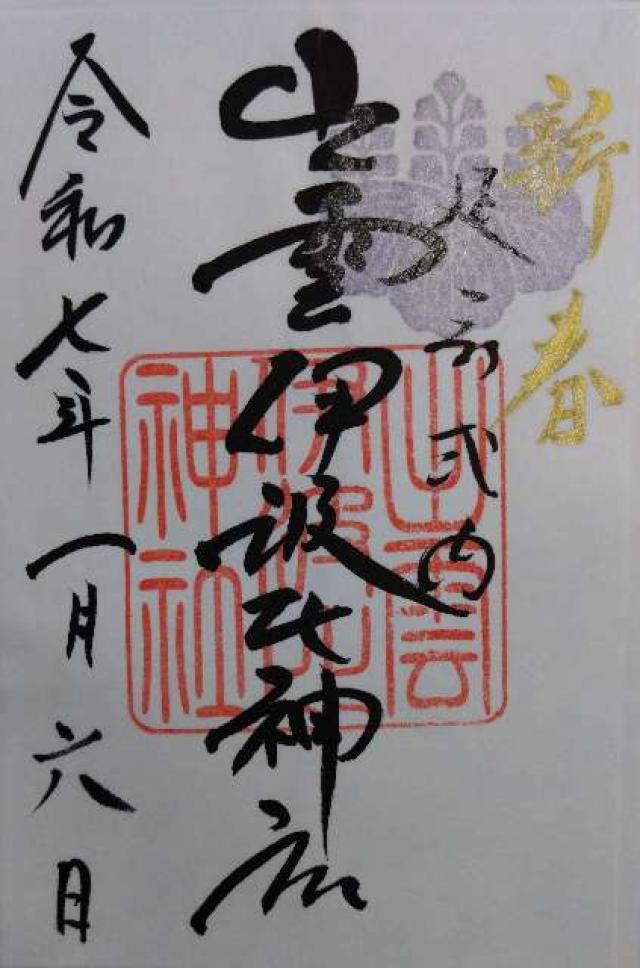 新春
延喜式内
出雲伊波比神社
出雲
伊波比
神社
令和七年一月六日